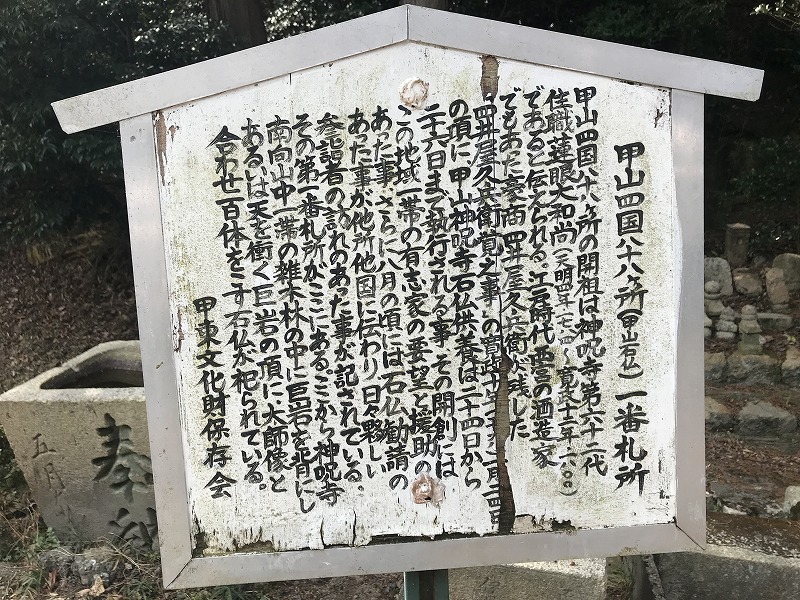 甲山四国八十八ヶ所(甲山石仏)一番札所
甲山四国八十八ヶ所の開祖は神呪寺第六十二代
住職蓮眼大和尚(天明四年一七八四〜寛政十二年一八〇〇)
であると伝えられる。江戸時代西宮の酒造家
でもあった豪商四井屋久兵衛が残した
四井屋久兵衛覚之事の寛政十
の頃に、甲山神呪寺石仏供養は二十四日から
二十六日まで執行される事、その開創には
この地域一帯の有志家の要望と援助の
あった事、さらに八月の頃には石仏勧請の
あった事が他所他国に伝わり日々夥しい
参詣者の訪れのあった事が記されている。
その第一番札所がここにある。ここから神呪寺
南向山中一帯の雑木林の中に巨岩を背にし
あるいは天を衝く巨岩の頂に、大師像と
合わせ一百体をこす石仏が祀られている。
甲東文化財保存会
奉納
五月